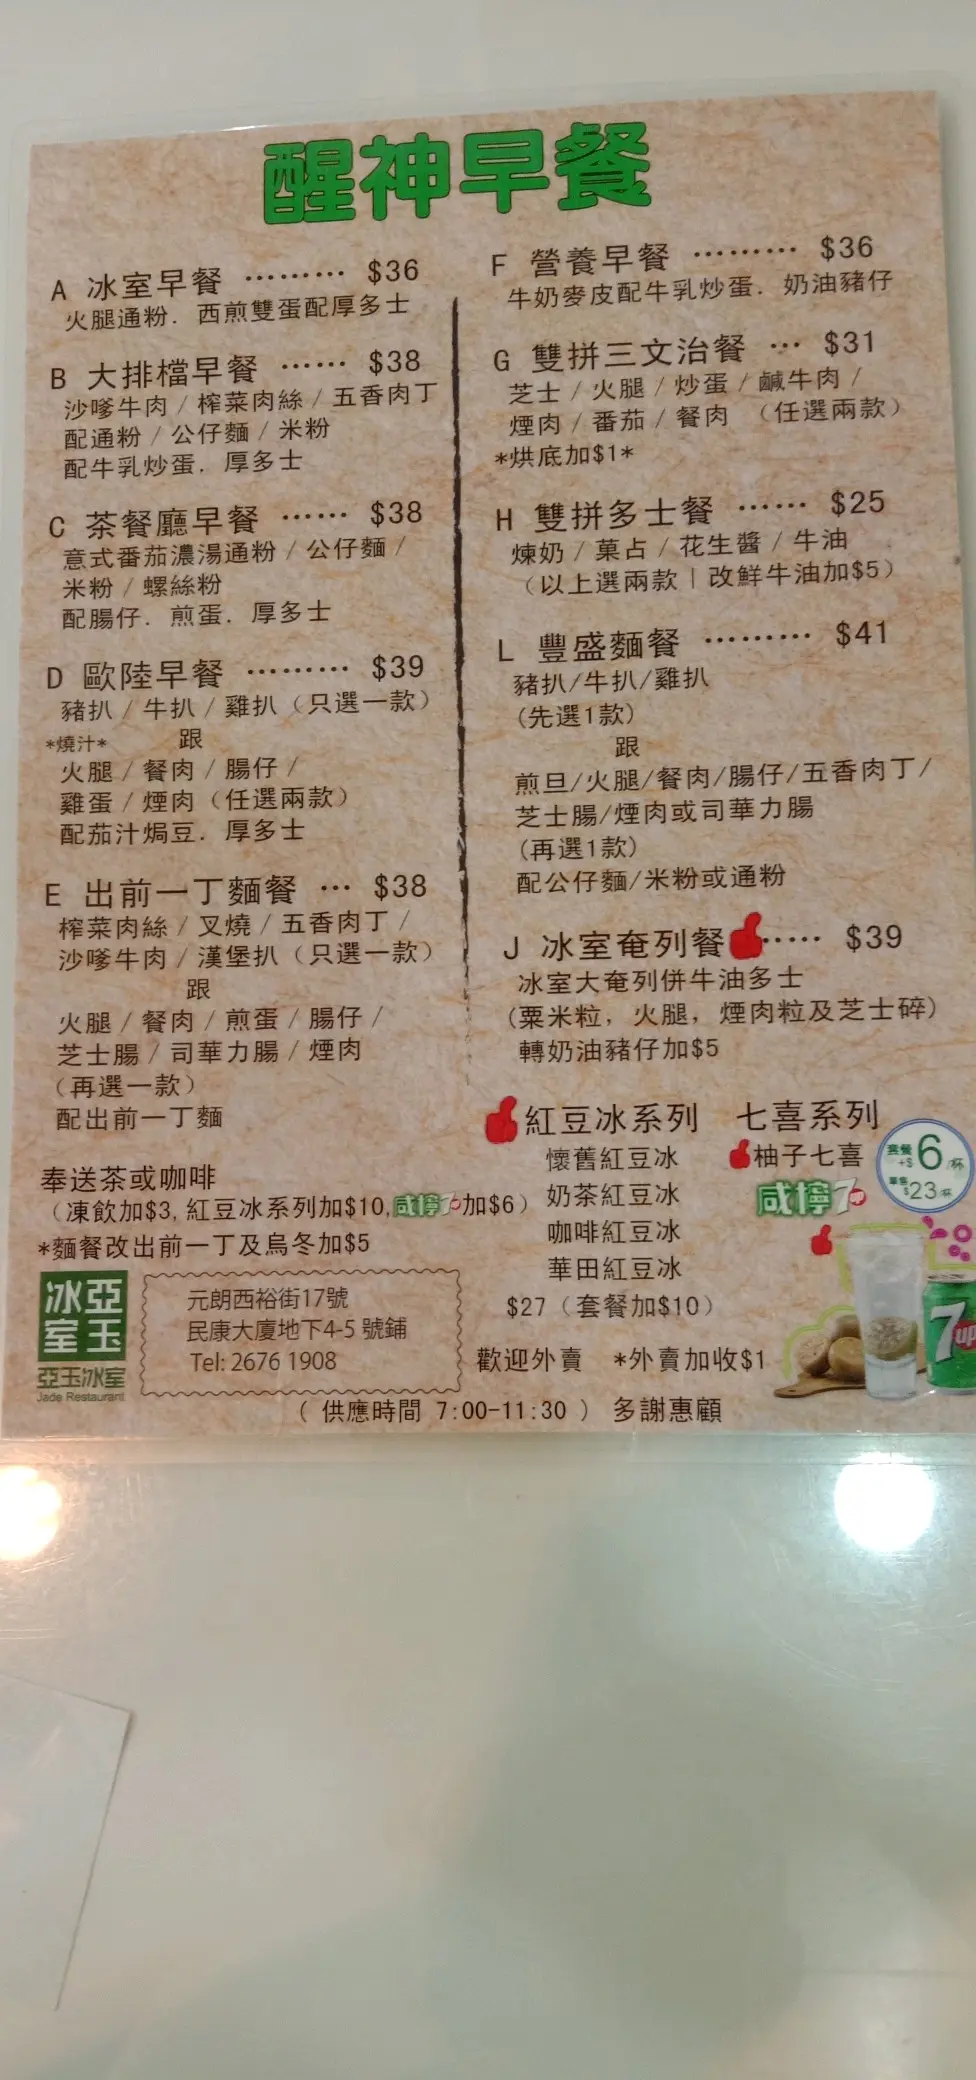 醒神早餐
A 冰室早餐 ……… $36
火腿通粉. 西煎雙蛋配厚多士
B 大排檔早餐 …… $38
沙嗲牛肉 / 榨菜肉絲 / 五香肉丁
配通粉 / 公仔麵 / 米粉
配牛乳炒蛋. 厚多士
C 茶餐廳早餐 …… $38
意式番茄濃湯通粉 / 公仔麵 /
米粉 / 螺絲粉
配腸仔. 煎蛋. 厚多士
D 歐陸早餐 ……… $39
豬扒 / 牛扒 / 雞扒（只選一款）
*燒汁* 跟
火腿 / 餐肉 / 腸仔 /
雞蛋 / 煙肉（任選兩款）
配茄汁焗豆. 厚多士
E 出前一丁麵餐 … $38
榨菜肉絲 / 叉燒 / 五香肉丁 /
沙嗲牛肉 / 漢堡扒（只選一款）
跟
火腿 / 餐肉 / 煎蛋 / 腸仔 /
芝士腸 / 司華力腸 / 煙肉
（再選一款）
配出前一丁麵
奉送茶或咖啡
（凍飲加$3, 紅豆冰系列加$10, 咸檸7加$6）
*麵餐改出前一丁及烏冬加$5
F 營養早餐 ……… $36
牛奶麥皮配牛乳炒蛋. 奶油豬仔
G 雙拼三文治餐 … $31
芝士 / 火腿 / 炒蛋 / 鹹牛肉 /
煙肉 / 番茄 / 餐肉 （任選兩款）
*烘底加$1*
H 雙拼多士餐 …… $25
煉奶 / 菓占 / 花生醬 / 牛油
（以上選兩款 | 改鮮牛油加$5）
L 豐盛麵餐 ……… $41
豬扒/牛扒/雞扒
(先選1款)
跟
煎旦/火腿/餐肉/腸仔/五香肉丁/
芝士腸/煙肉或司華力腸
(再選1款)
配公仔麵/米粉或通粉
J 冰室奄列餐 ‥… $39
冰室大奄列併牛油多士
(粟米粒, 火腿, 煙肉粒及芝士碎)
轉奶油豬仔加$5
紅豆冰系列
懷舊紅豆冰
奶茶紅豆冰
咖啡紅豆冰
華田紅豆冰
$27（套餐加$10）
七喜系列
柚子七喜
咸檸7up
套餐+$6/杯
單售$23/杯
7up
歡迎外賣 *外賣加收$1
冰亞
室玉
亞玉冰室
Jade Restaurant
元朗西裕街17號
民康大廈地下4-5 號鋪
Tel: 2676 1908
（ 供應時間 7:00-11:30 ） 多謝惠顧